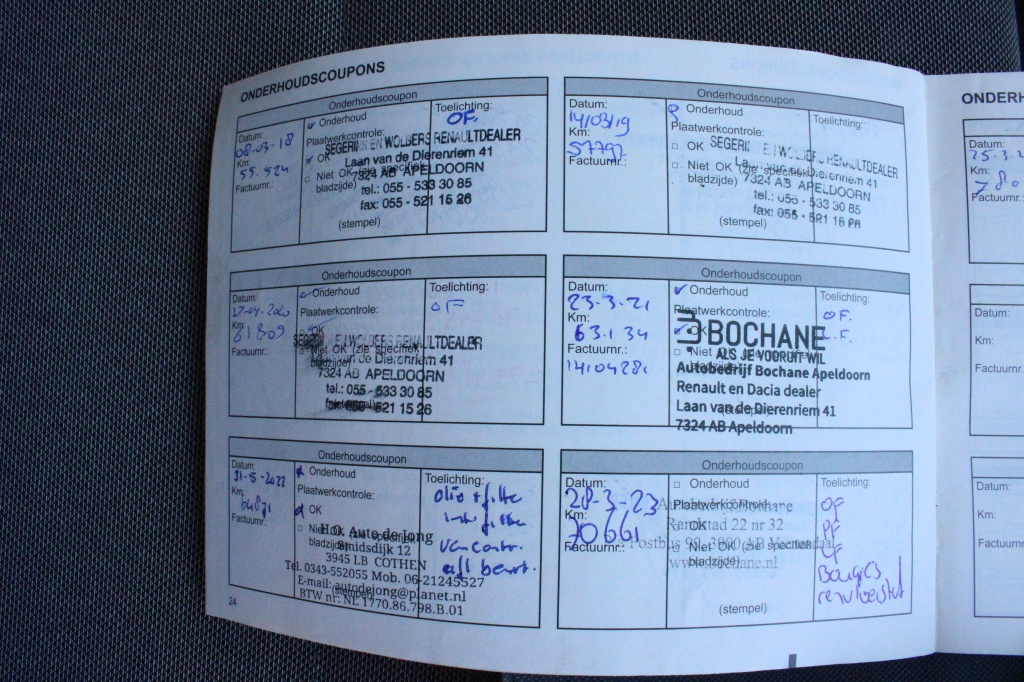 ONDERHOUDSCOUPONS
Onderhoudscoupon
Datum:
08-03-18
Km:
55.524
Factuurnr.:
Onderhoud
Plaatwerkcontrole:
OK
Niet OK (zie specifiek
bladzijde)
(stempel)
Toelichting:
OF.
SEGERINK EN WOLBERS RENAULTDEALER
Laan van de Dierenriem 41
7324 AB APELDOORN
tel.: 055 - 533 30 85
fax: 055 - 521 15 26
Onderhoudscoupon
Datum:
14/03/19
Km:
57792
Factuurnr.:
Onderhoud
Plaatwerkcontrole:
OK
Niet OK (zie specifiek
bladzijde)
(stempel)
Toelichting:
SEGERINK EN WOLBERS RENAULTDEALER
Laan van de Dierenriem 41
7324 AB APELDOORN
tel.: 055 - 533 30 85
fax: 055 - 521 15 26
Onderhoudscoupon
Datum:
17-04-2020
Km:
61809
Factuurnr.:
Onderhoud
Plaatwerkcontrole:
OK
Niet OK (zie specifiek
bladzijde)
(stempel)
Toelichting:
OF
SEGERINK EN WOLBERS RENAULTDEALER
Laan van de Dierenriem 41
7324 AB APELDOORN
tel.: 055 - 533 30 85
fax: 055 - 521 15 26
Onderhoudscoupon
Datum:
23-3-21
Km:
63.134
Factuurnr.:
14104281
Onderhoud
Plaatwerkcontrole:
OK
Niet OK (zie specifiek
bladzijde)
(stempel)
Toelichting:
OF.
BOCHANE
ALS JE VOORUIT WIL
Autobedrijf Bochane Apeldoorn
Renault en Dacia dealer
Laan van de Dierenriem 41
7324 AB Apeldoorn
Onderhoudscoupon
Datum:
31-5-2022
Km:
64871
Factuurnr.:
Onderhoud
Plaatwerkcontrole:
OK
Niet OK (zie specifiek
bladzijde)
(stempel)
Toelichting:
olie + filter
int filter
Van contr.
beurt.
Auto de Jong
Smidsdijk 12
3945 LB COTHEN
Tel. 0343-552055 Mob. 06-21245527
E-mail: autodejong@planet.nl
BTW nr: NL 1770.86.798.B.01
Onderhoudscoupon
Datum:
28-3-23
Km:
70661
Factuurnr.:
Onderhoud
Plaatwerkcontrole:
OK
Niet OK (zie specifiek
bladzijde)
(stempel)
Toelichting:
OF
PF
LF
Bougies
remvloeistof
Bochane
Randstad 22 nr 32
Postbus 99, 3900 AB Veenendaal
www.bochane.nl
24
ONDERH
Datum:
25-3-2
Km:
780
Factuurnr.:
Datum:
Km:
Factuurnr.
Datum:
Km:
Factuurnr